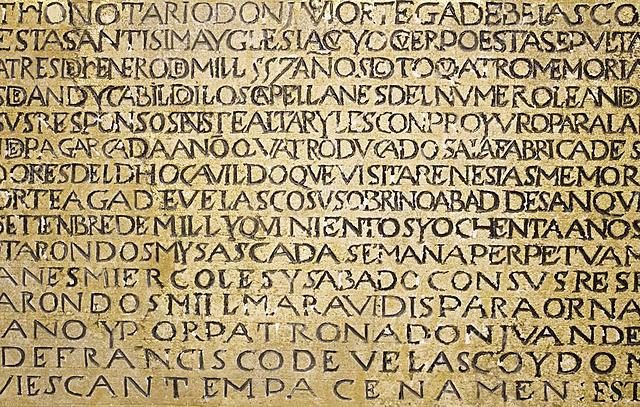 THONOTARIODONJVIORTEGADEBELASCO
ESTASANTISIMAYGLESIACVYOCVERPOESTASEPVLTA
ATRESDHENERODMILL557AÑOSDOTOQVATROMEMORIA
SDANDYCABILDIDLOSCAPELLANESDELNVMEROLEANDE
SVSRESPONSOSENESTEALTARYLESCONPROYVROPARALA
DEPAGARCADAAÑOQVATRODVCADOSALAFABRICADES
DORESDELDHOCAVILDOQVEVISITARENESTASMEMOR
ORTEAGADEVELASCOSVSOBRINOABADDESANQVI
SETTENBREDEMILLYQVINIENTOSYOCHENTAANOS
TARONDOSMYSASCADASEMANAPERPETVAN
ANESMIERCOLESYSABADOCONSVSRESI
ARONDOSMILLMARAVIDISPARAORNA
ANOYPORPATRONADONJVANDE
DEFRANCISCODEVELASCOYDON
VIESCANTEMPACENAMENEST